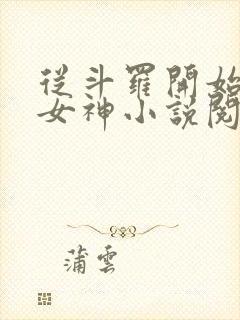 從斗羅開始
女神小說閱
蒲雲